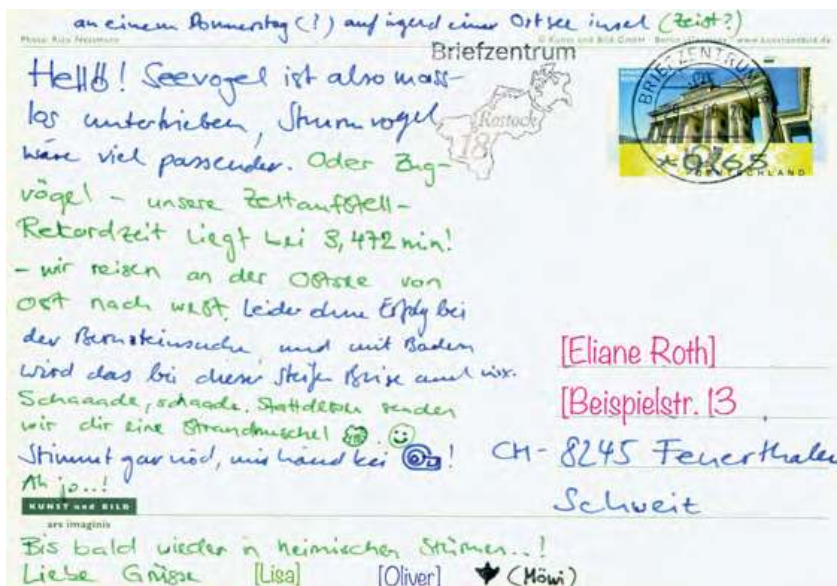 an einem Donnerstag (!) auf irgend einer Ostsee insel (Zeist?)
Photo: Rico Nessmann
© Kunst und Bild GmbH · Berlin · www.kunstundbild.de
Briefzentrum
Rostock
18
BRIEFZENTRUM
*0,65
DEUTSCHLAND
Hello! Seevogel ist also mass-
los untertrieben, Sturmvogel
wäre viel passender. Oder Zug-
vögel - unsere Zeltaufstell-
Rekordzeit liegt bei 3,472 min!
- wir reisen an der Ostsee von
Ost nach West. Leider ohne Erfolg bei
der Bernsteinsuche, und mit Baden
wird das bei dieser steifen Brise auch nix.
Schaaade, schaade. Stattdessen senden
wir dir eine Strandmuschel
Stimmt gar nöd, mir händ kei !
Ah jo..!
KUNST und BILD
ars imaginis
Bis bald wieder in heimischen Stürmen..!
Liebe Grüsse [Lisa] [Oliver] (Möwi)
[Eliane Roth]
[Beispielstr. 13
CH- 8245 Feuerthalen
Schweit